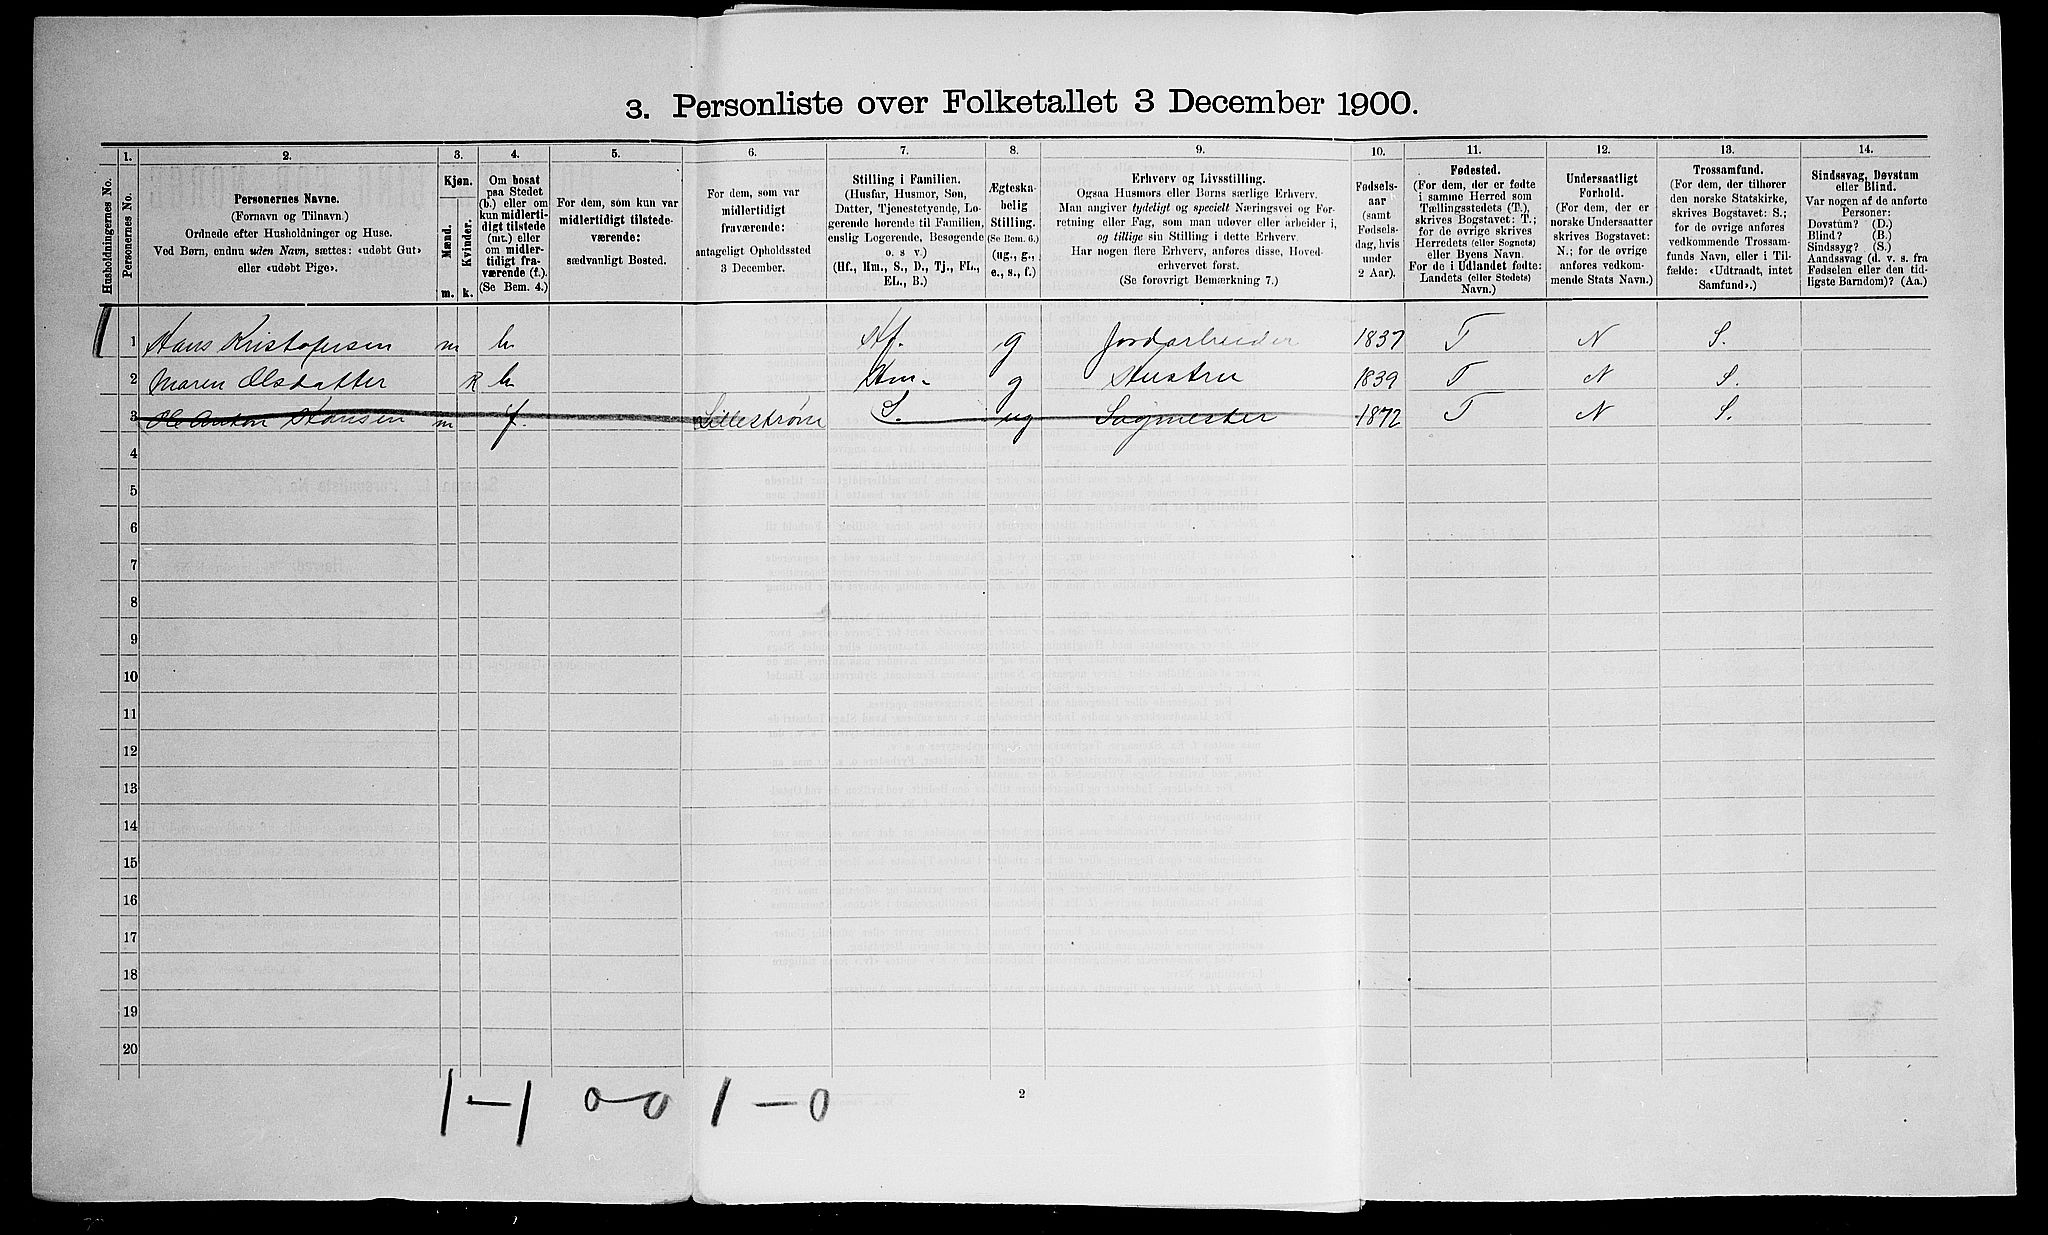 3. Personliste over Folketallet 3 December 1900.
Husholdningernes No.
1. Personernes No.
2. Personernes Navne.
(Fornavn og Tilnavn.)
Ordnede efter Husholdninger og Huse.
Ved Børn, endnu uden Navn, sættes: «udøbt Gut»
eller «udøbt Pige».
3. Kjøn.
Mænd. Kvinder.
m. k.
4. Om bosat
paa Stedet
(b.) eller om
kun midlerti-
digt tilstede
(mt.) eller
om midler-
tidigt fra-
værende (f.).
(Se Bem. 4.)
5. For dem, som kun var
midlertidigt tilstede-
værende:
sædvanligt Bosted.
6. For dem, som var
midlertidigt
fraværende:
antageligt Opholdssted
3 December.
7. Stilling i Familien.
(Husfar, Husmor, Søn,
Datter, Tjenestetyende, Lo-
gerende hørende til Familien,
enslig Logerende, Besøgende
o. s v.)
(Hf., Hm., S., D., Tj., FL.,
EL., B.)
8. Ægteska-
belig
Stilling.
(Se Bem. 6.)
(ug., g.,
e., s., f.)
9. Erhverv og Livsstilling.
Ogsaa Husmors eller Børns særlige Erhverv.
Man angiver tydeligt og specielt Næringsvei og For-
retning eller Fag, som man udøver eller arbeider i,
og tillige sin Stilling i dette Erhverv.
Har nogen flere Erhverv, anføres disse, Hoved-
erhvervet først.
(Se forøvrigt Bemærkning 7.)
10. Fødsels-
aar
(samt
Fødsels-
dag, hvis
under
2 Aar).
11. Fødested.
(For dem, der er fødte
i samme Herred som
Tællingsstedets (T.),
skrives Bogstavet: T.;
for de øvrige skrives
Herredets (eller Sognets)
eller Byens Navn.
For de i Udlandet fødte:
Landets (eller Stedets)
Navn.)
12. Undersaatligt
Forhold.
(For dem, der er
norske Undersaatter
skrives Bogstavet:
N.; for de øvrige
anføres vedkom-
mende Stats Navn.)
13. Trossamfund.
(For dem, der tilhører
den norske Statskirke,
skrives Bogstavet: S.;
for de øvrige anføres
vedkommende Trossam-
funds Navn, eller i Til-
fælde: «Udtraadt, intet
Samfund».)
14. Sindssvag, Døvstum
eller Blind.
Var nogen af de anførte
Personer:
Døvstum? (D.)
Blind? (B.)
Sindssyg? (S.)
Aandssvag (d. v. s. fra
Fødselen eller den tid-
ligste Barndom)? (Aa.)
1 1 Hans Kristofersen m b. Hf. g Jordarbeider 1837 T N S.
2 Maren Olsdatter k b. Hm. g Hustru 1839 T N S.
3 Ole Anton Hansen m f. Lillestrøm S. ug Sagmester 1872 T N S.
4
5
6
7
8
9
10
11
12
13
14
15
16
17
18
19
20
1-1 0-0 1-0
2